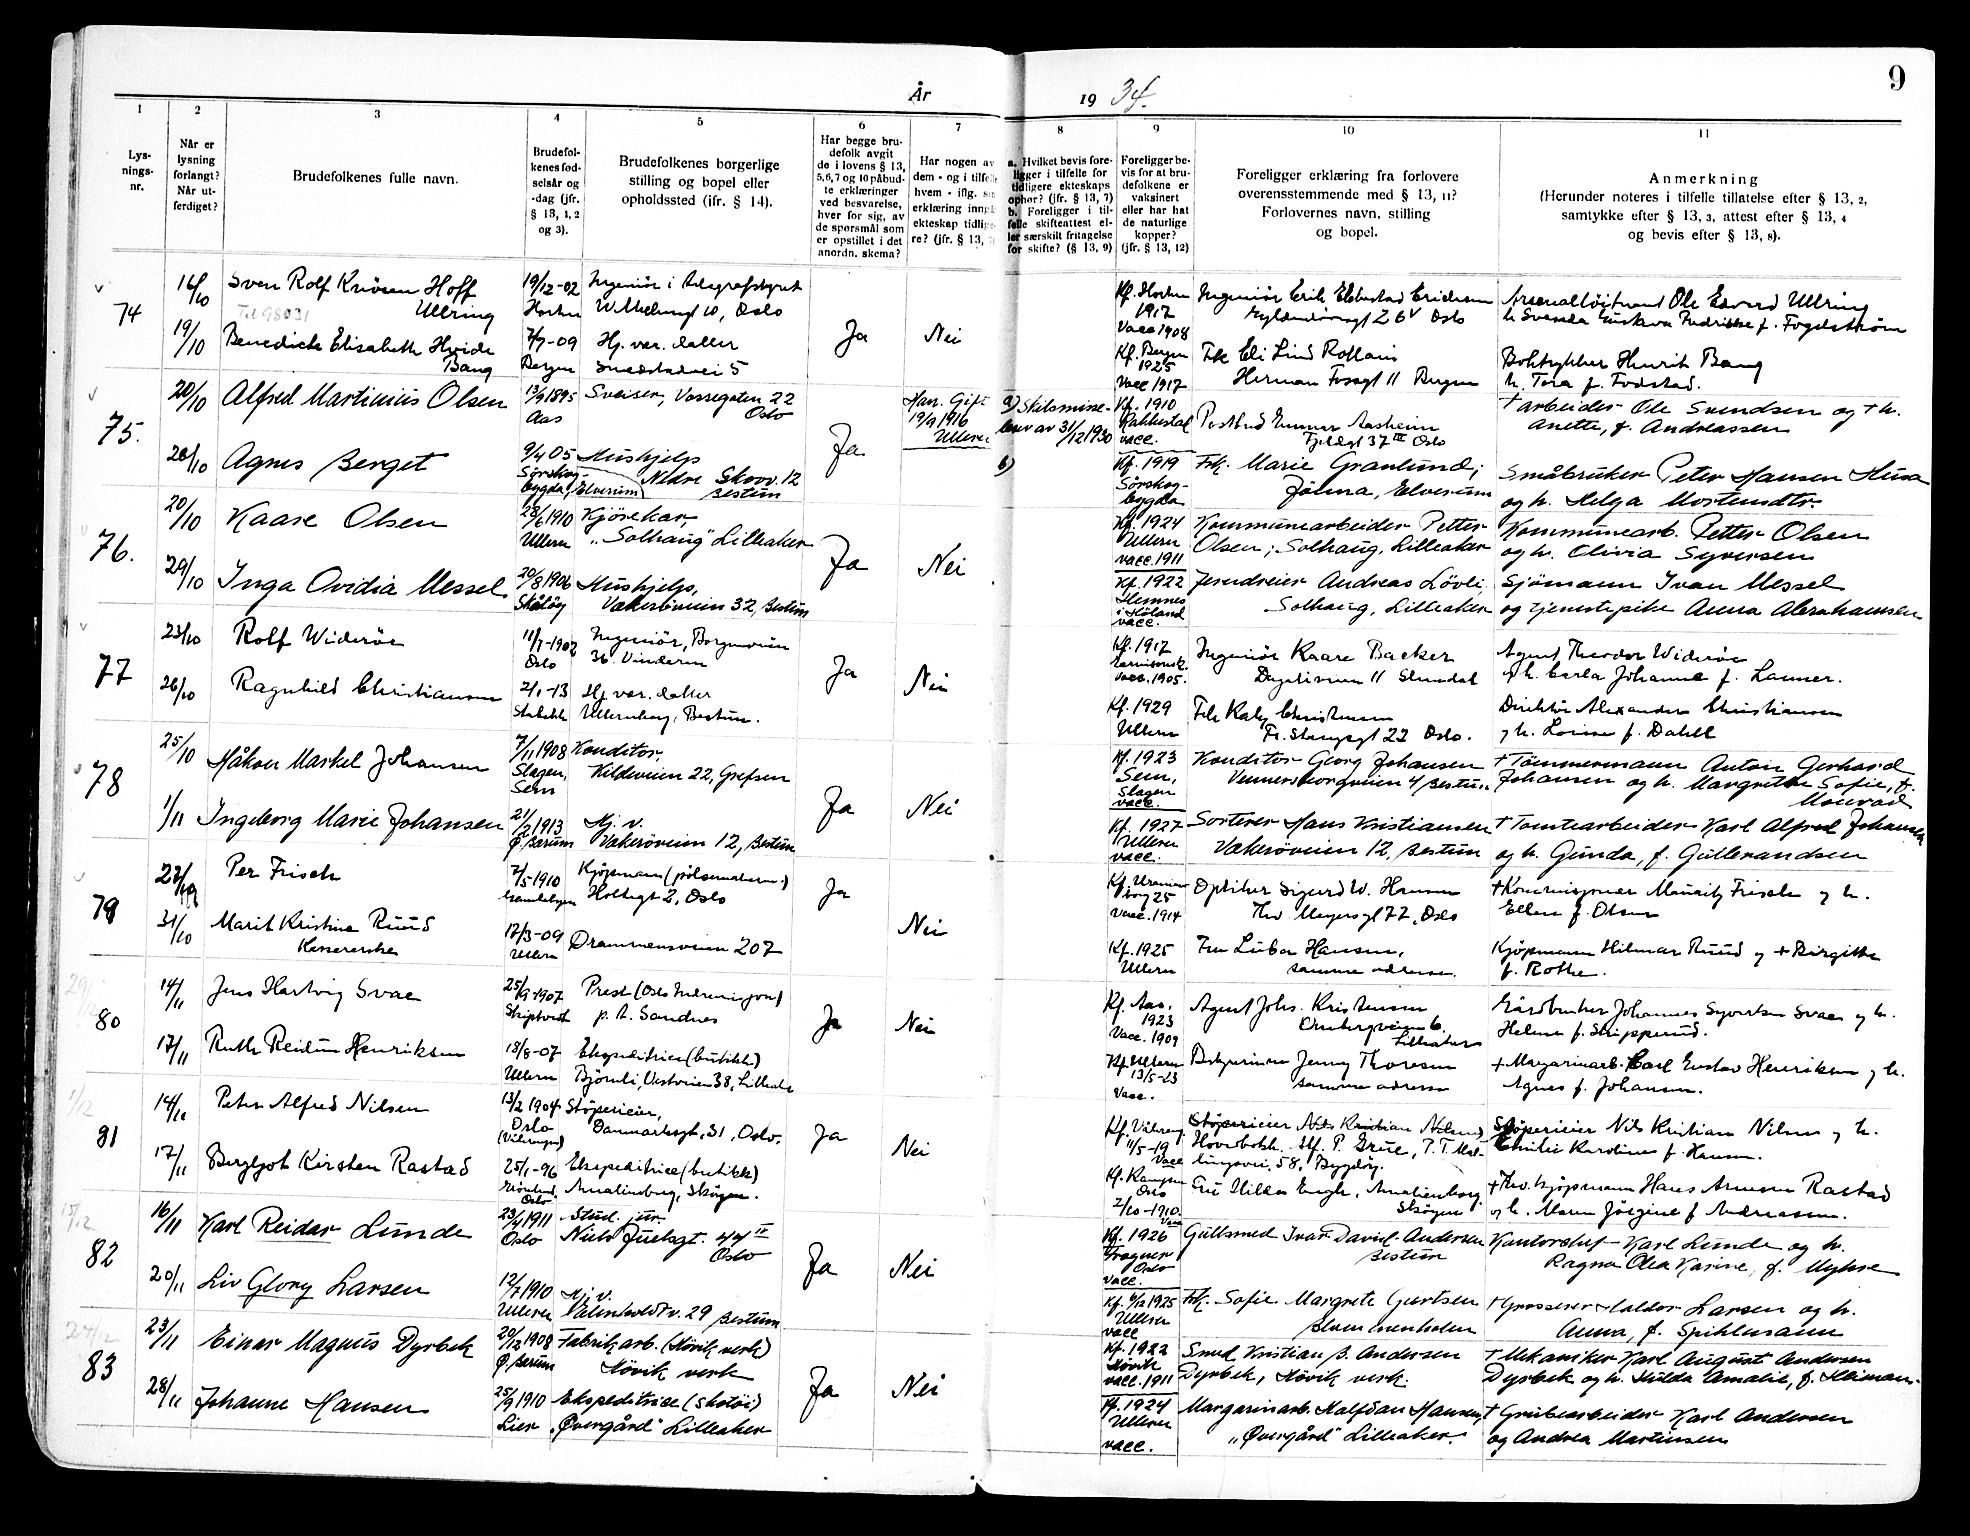 År 1934.
9
1
2
3
4
5
6
7
8
9
10
11
Lys-
nings-
nr.
Når er
lysning
forlangt?
Når ut-
ferdiget?
Brudefolkenes fulle navn.
Brudefol-
kenes fød-
selsår og
-dag (jfr.
§ 13, 1, 2
og 3).
Brudefolkenes borgerlige
stilling og bopel eller
opholdssted (ifr. § 14).
Har begge bru-
defolk avgit
de i lovens § 13,
5, 6, 7 og 10 påbud-
te erklæringer
ved besvarelse,
hver for sig, av
de spørsmål som
er opstillet i det
anordn. skema?
Har nogen av
dem - og i tilfelle
hvem - iflg.
erklæring inngå
ekteskap tidlige-
re? (jfr. § 13,
a. Hvilket bevis fore-
ligger i tilfelle for
tidligere ekteskaps
ophør? (jfr. § 13, 7)
b. Foreligger i til-
felle skifteattest el-
ler særskilt fritagelse
for skifte? (§ 13, 9)
Foreligger be-
vis for at bru-
defolkene er
vaksinert
eller har hat
de naturlige
kopper?
(jfr. § 13, 12)
Foreligger erklæring fra forlovere
overensstemmende med § 13, 11?
Forlovernes navn, stilling
og bopel.
Anmerkning
(Herunder noteres i tilfelle tillatelse efter § 13, 2,
samtykke efter § 13, 3, attest efter § 13, 4
og bevis efter § 13, 8).
74
16/10
Sven Rolf Hoff
Ullring
Tel 98031
19/12-02
Horten
Ingeniør i Telegrafstyret
10, Oslo
Ja
Nei
Kf. Horten
1917
Vacc 1908
Ingeniør Erik Ericksen
Oslo
Ole Edvard Ullring
19/10
Benedicte Elisabeth Hvide
Bang
7/7-09
Bergen
Hj. vær. datter
5
Kf. Bergen
1925
Vacc 1917
Frk Eli Lind
Herman Fossgt 11 Bergen
Boktrykker Henrik Bang
h. Tora f. Fodstad.
75.
20/10
Alfred Martinius Olsen
13/9 1895
Aas
Sveiser, Vossegaten 22
Oslo
Ja
Han. Gift
19/9 1916
Ullern
a) Skilsmisse-
brev av 31/12 1930
b)
Kf. 1910
Rakkestad
vacc.
Postbud Gunnar Aasheim
37 III Oslo
+ arbeider Ole Svendsen og + h.
Anette, f. Andreassen
20/10
Agnes Berget
9/4 05
Sørskog-
bygda, Elverum
Hushjelp
Nedre Skovv. 12
Bestum
Kf. 1919
Sørskog-
bygda
Frk. Marie Granlund;
Jømna, Elverum
Småbruker Peter Hansen Husa
og h. Helga Mortensdtr.
76.
20/10
Kaare Olsen
28/6 1910
Ullern
Kjørekar,
"Solhaug" Lilleaker
Ja
Nei
Kf. 1924
Ullern
vacc. 1911
Kommunearbeider Petter
Olsen; Solhaug, Lilleaker
Kommunearb. Petter Olsen
og h. Olivia Syversen
29/10
Inga Ovidia Messel
20/8 1906
Skåtøy
Hushjelp,
Vækerøveien 32, Bestum
Kf. 1922
Hemnes
i Høland
vacc.
Andreas Løvli,
Solhaug, Lilleaker
Sjømann Ivan Messel
og tjenestepike Anna Abrahamsen
77
23/10
Rolf Widerøe
11/7-1902
Oslo
Ingeniør, Borgenveien
36. Vinderen
Ja
Nei
Kf. 1917
Garnisonsk.
Vacc. 1905.
Ingeniør Kaare Backer
11 Slemdal
Agent Theodor Widerøe
og h. Carla Johanne f. Launer.
26/10
Ragnhild Christiansen
2/1-13
Stabekk
Hj. vær. datter
Ullernborg, Bestum.
Kf. 1929
Ullern
Frk Christensen
Fr. Stangsgt 22 Oslo.
Direktør Alexander Christiansen
og h. Louise f. Dahll
78
25/10
Håkon Markel Johansen
7/11 1908
Slagen,
Sem
Konditor,
Kildeveien 22, Grefsen
Ja
Nei
Kf. 1923
Sem,
Slagen
vacc.
Konditor Georg Johansen
Vennersborgveien 4 Bestum
+ Tømmermann Anton Gerhard
Johansen og h. Margrethe Sofie, f.
Monrad
1/11
Ingeborg Marie Johansen
21/2 1913
Ø. Bærum
Hj. v.
Vækerøveien 12, Bestum
Kf. 1927
Ullern
vacc.
Sorterer Hans Kristiansen
Vækerøveien 12, Bestum
+ Tomtearbeider Karl Alfred Johansen
og h. Gunda, f. Gulbrandsen
79
27/10
Per Frisch
7/5-1910
Gamlebyen
Kjøpmann
Holtegt 2, Oslo
Ja
Nei
Kf. Uranien-
borg 25
Vacc. 1914
Optiker Sigurd W. Hansen
Thv. Meyersgt 77, Oslo
+ Kommisjonær Mauritz Frisch og h.
Ellen f. Olsen
31/10
Marit Kristine Ruud
17/3-09
Ullern
Drammensveien 207
Kf. 1925
Ullern
Fru Luba Hansen,
samme adresse.
Kjøpmann Hilmar Ruud og + Birgitte
f. Rothe.
80
14/11
Jens Hartvig Svae
25/9-1907
Skiptvet
Prest (Oslo Indremisjon)
p. t. Sandnes
Ja
Nei
Kf. Aas.
1923
Vacc. 1909
Agent Johs. Kristensen
Lilleaker
Gårdbruker Johannes Syvertsen Svae og h.
Helene f. Skipperud.
17/11
Ruth Reidun Henriksen
18/8-07
Ullern
Ekspeditrice (butikk)
Bjørnli, Vestveien 38, Lilleaker
Kf Ullern
13/5-23
Vacc.
Jenny Thoresen
samme adresse
+ Margarinarb. Carl Gustav Henriksen og h.
Agnes f. Johansen.
1/12
81
14/11
Peter Alfred Nilsen
13/2 1904
Oslo
(Vålerengen)
Støperieier,
Danmarksgt. 31, Oslo.
Ja
Nei
Kf. Vålereng
11/5-19
Vacc
Støperieier Nils Kristian Nilsen
58, Bygdøy.
Støperieier Nils Kristian Nilsen og h.
Emilie Karoline f. Hansen.
17/11
Bergljot Kirsten Rastad
25/1-96
Grønland,
Oslo
Ekspeditrice (butikk)
Amalienborg, Skøyen.
Kf. Kampen
Oslo
2/10-1910.
Vacc
Fru Hilda Engh, Amalienborg
Skøyen
+ Thv. kjøpmann Hans Arnesen Rastad
og h. Maren Jørgine f Andreassen.
15/12
82
16/11
Karl Reidar Lunde
23/4 1911
Oslo
Stud. jur.
Niels Juelsgt. 44 IV
Oslo
Ja
Nei
Kf. 1926
Frogner
Oslo
vacc.
Gullsmed Ivar David Andersen
Bestum
Kontorchef Karl Lunde og h.
Ragna Olea Karine, f. Myhre
20/11
Liv Glory Larsen
12/7 1910
Ullern
Hj. v.
29 Bestum
Kf. 6/12 1925
Ullern
vacc
Frk. Sofie Margrete Gjertsen
Blommenholm
+ Grosserer Haldor Larsen og h.
Anna, f. Spihlmann
24/12
83
23/11
Einar Magnus Dyrbek
20/12 1908
Ø. Bærum
Fabrikarb. (Høvik verk)
Høvik verk
Ja
Nei
Kf. 1922
Høvik
vacc. 1911
Smed Kristian B. Andersen
Dyrbek, Høvik verk.
+ Mekaniker Karl August Andersen
Dyrbek og h. Hilda Amalie, f. Heiman.
28/11
Johanne Hansen
25/9 1910
Lier
Ekspeditrice (skotøi)
"Øvergård" Lilleaker
Kf. 1924
Ullern
vacc.
Margarinarb. Halfdan Hansen,
"Øvergård" Lilleaker.
+ Grubearbeider Karl Andersen
og Andrea Martinsen